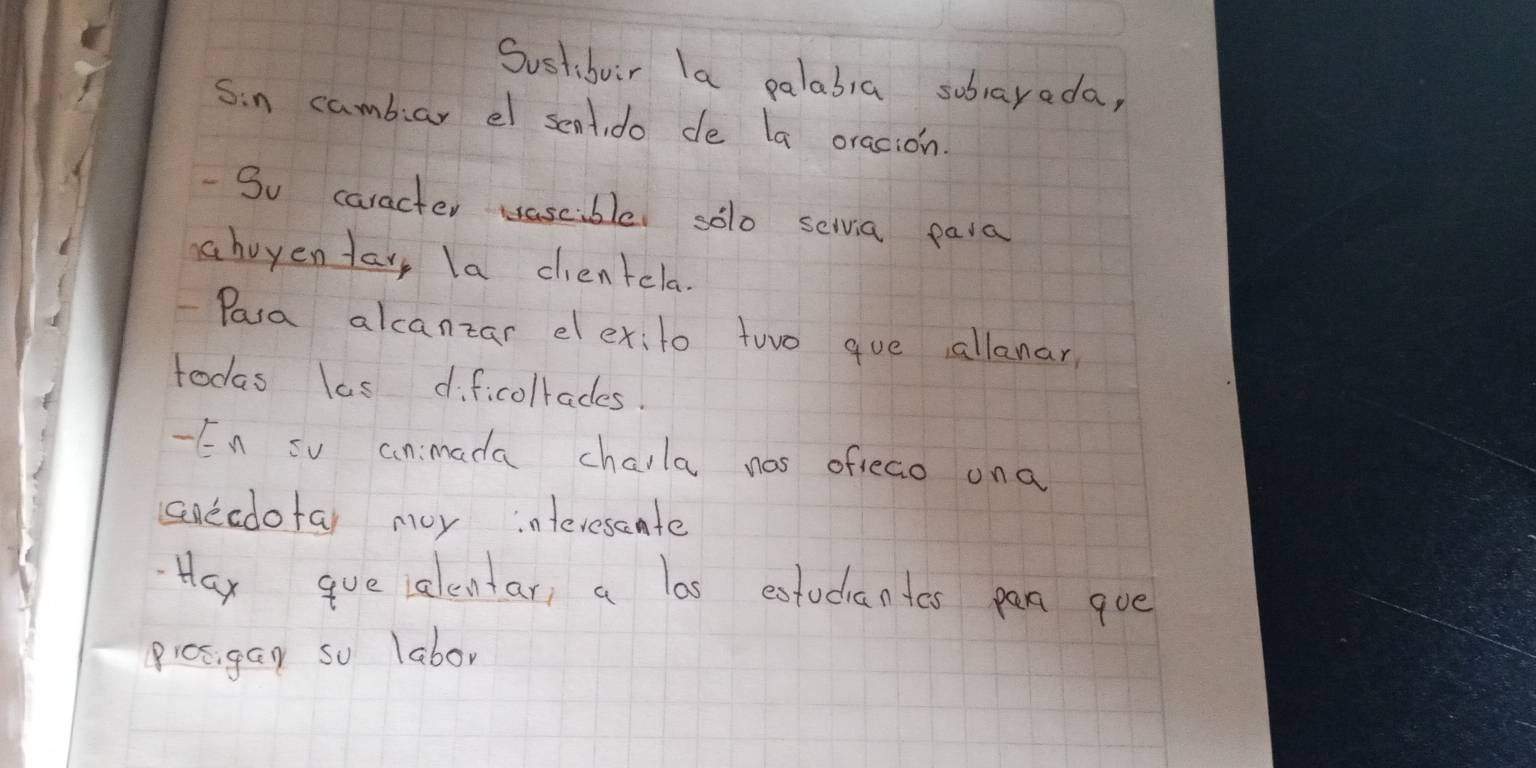 Sustibuir la palabra subrayada,
Sin cambiar el sentido de la oración.
- Su caracter irascible sólo servia para
ahuyentar, la clientela.
- Para alcanzar el exito tuvo que allanar,
todas las dificultades.
- En su animada charla nos ofrecio una
anécdota muy interesante
- Hay que alentar, a los estudiantes para que
prosigan su labor